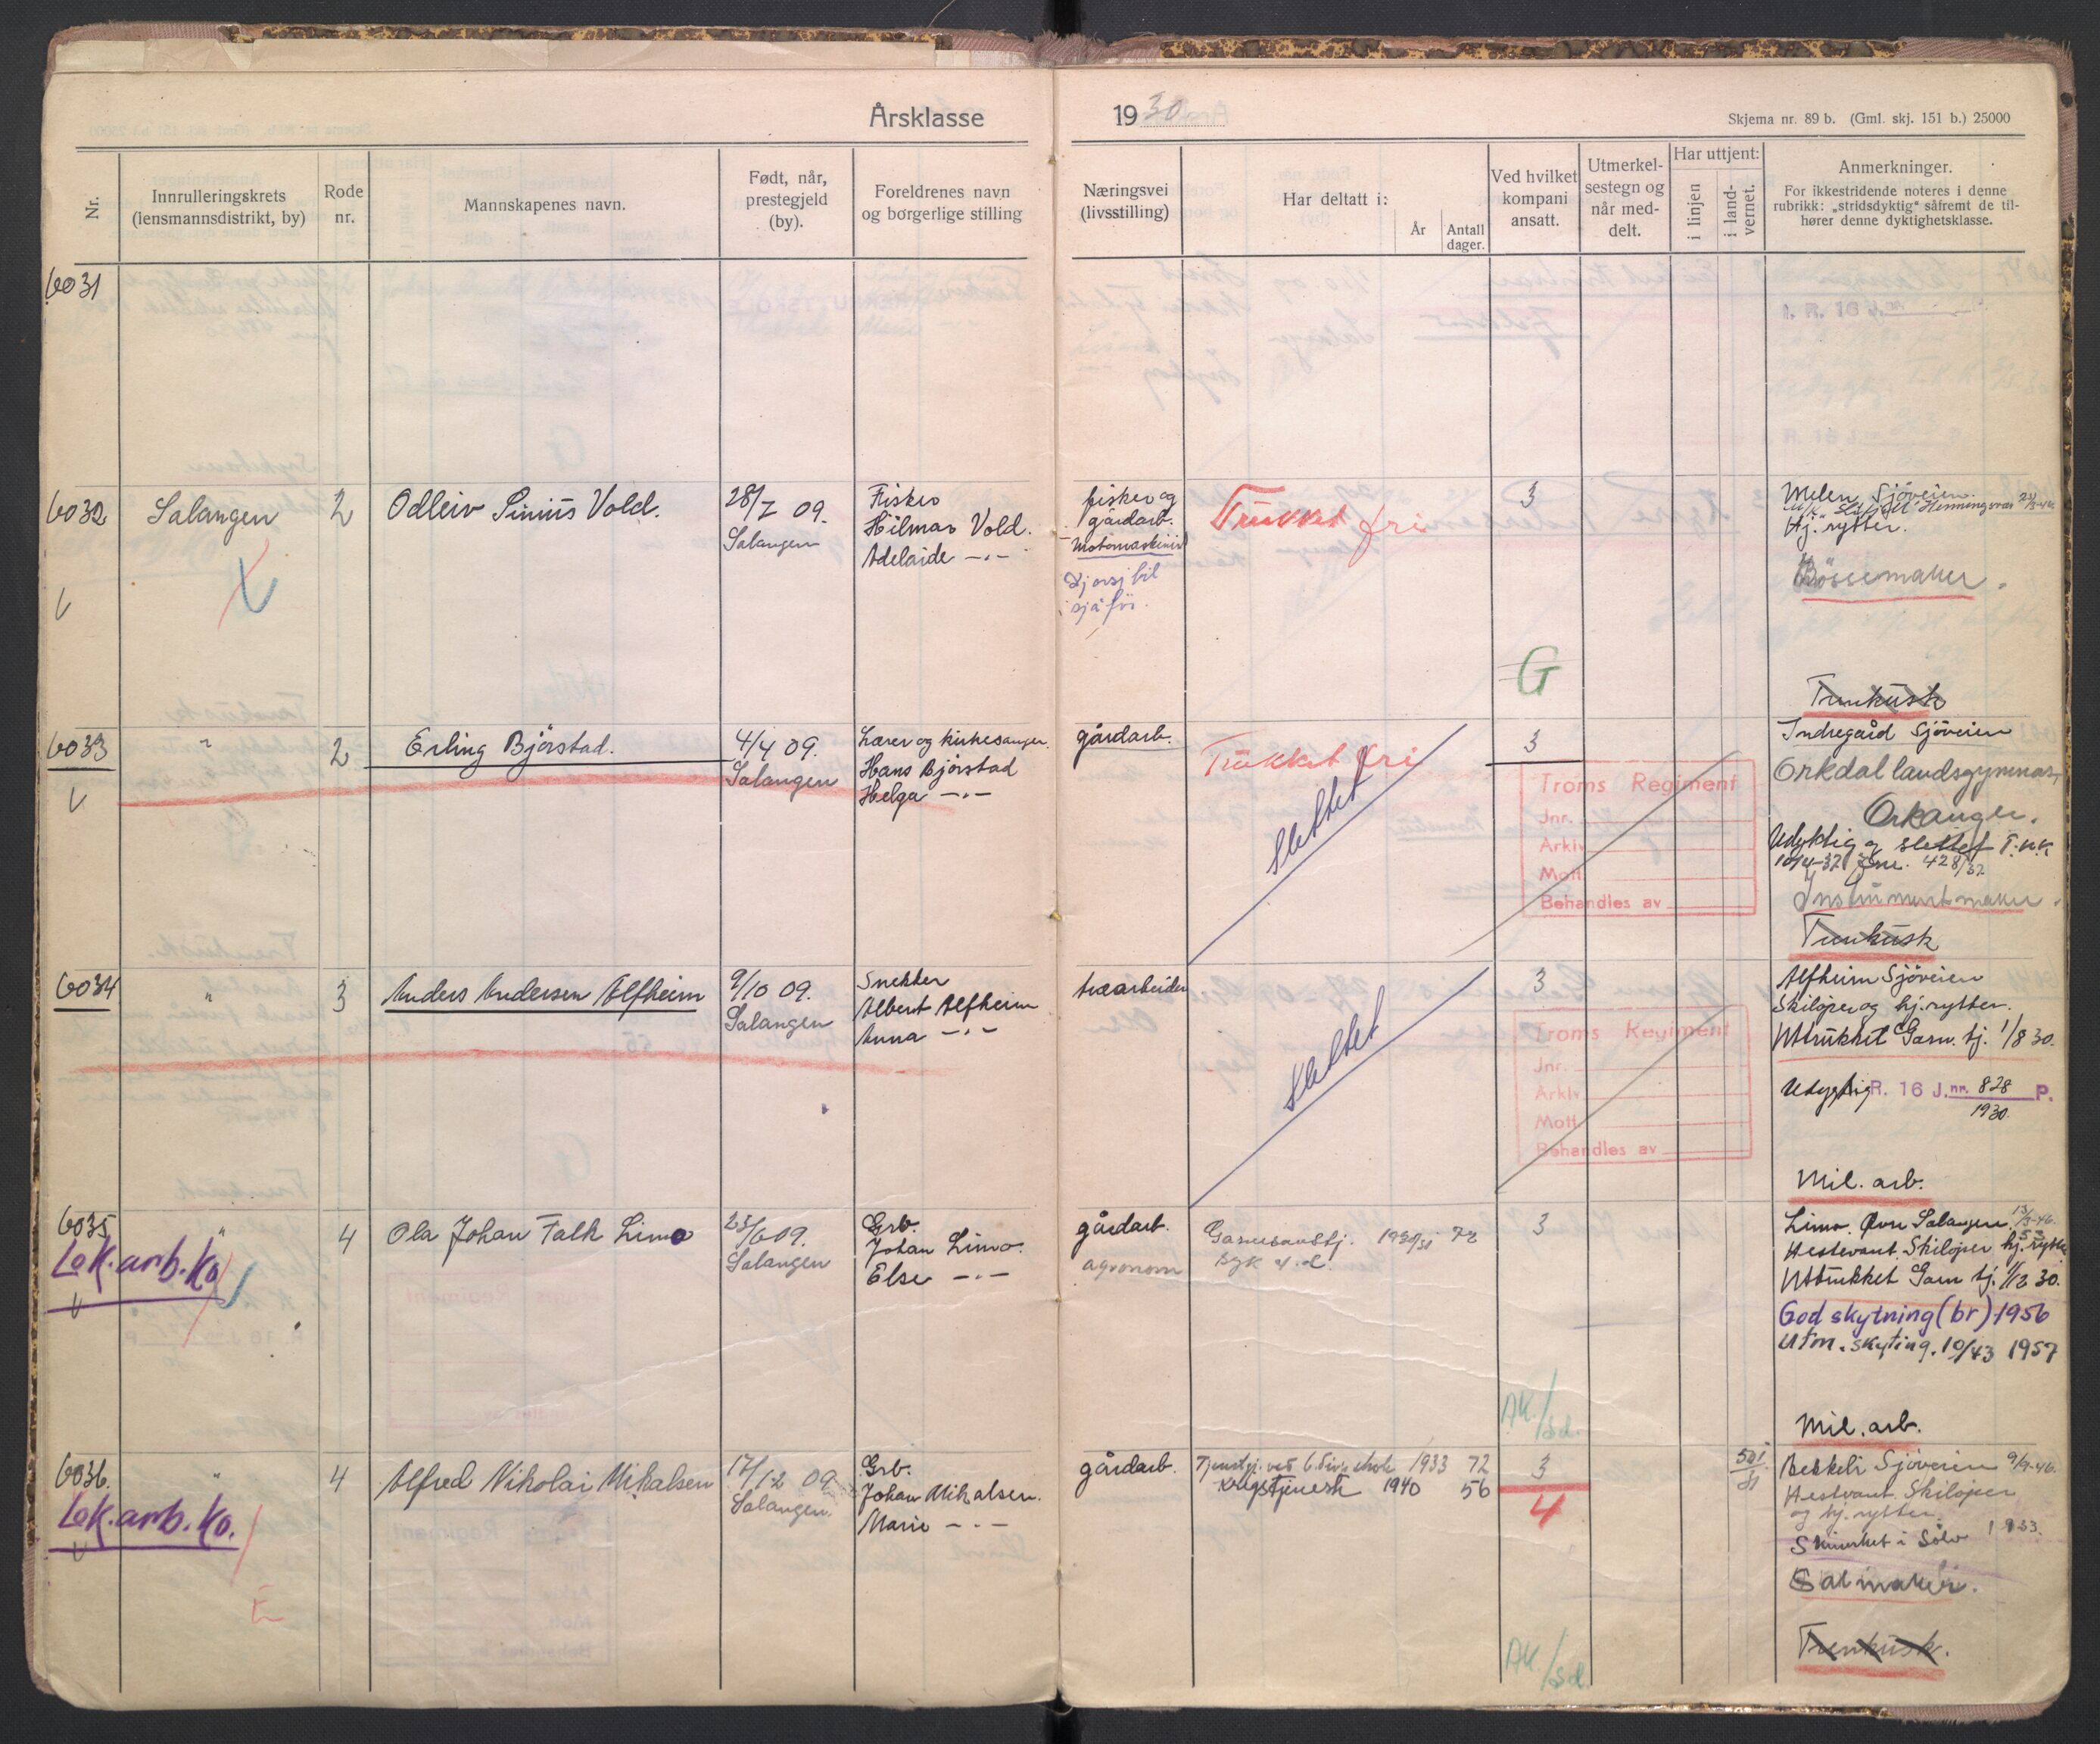 Årsklasse
1930
Skjema nr. 89 b. (Gml. skj. 151 b.) 25000
Nr.
Innrulleringskrets
(lensmannsdistrikt, by)
Rode
nr.
Mannskapenes navn.
Født, når,
prestegjeld
(by).
Foreldrenes navn
og borgerlige stilling
Næringsvei
(livsstilling)
Har deltatt i:
År
Antall
dager.
Ved hvilket
kompani
ansatt.
Utmerkel-
sestegn og
når med-
delt.
Har uttjent:
i linjen
i land-
vernet.
Anmerkninger.
For ikkestridende noteres i denne
rubrikk: „stridsdyktig“ såfremt de til-
hører denne dyktighetsklasse.
6031
6032
Salangen
2
Odleiv Sinius Vold.
28/7 09.
Salangen
Fisker
Hilmar Vold.
Adelaide -"-
fisker og
gårdarb.
Motormaskinist
sjåfør.
Trukket fri
3
G
Melen Sjøveien.
Hj. rytter.
Bössemaker.
Trenkusk
6033
"
2
Erling Björstad.
4/4 09.
Salangen
Lærer og kirkesanger.
Hans Björstad
Helga -"-
gårdarb.
Trukket fri
slettet
3
Troms Regiment
Jnr.
Arkiv
Mott.
Behandles av
Indregård Sjöveien
Orkdal landsgymnas,
Orkanger.
Udyktig og slettet T.k.k.
10/4-32 Jnr. 428/32
Instrumentmaker.
Trenkusk
6034
"
3
Anders Andersen Alfheim
9/10 09.
Salangen
Snekker
Albert Alfheim
Anna -"-
træarbeider
slettet
3
Troms Regiment
Jnr.
Arkiv
Mott.
Behandles av
Alfheim Sjöveien
Skiløper og hj.rytter.
Uttrukket Garn. tj. 1/8 30.
Udyktig I.R. 16 J.nr. 828 P.
1930.
Mil. arb.
6035
"
Lok.arb.ko
4
Ola Johan Falk Limo
23/6 09.
Salangen
Grb.
Johan Limo.
Else -"-
gårdarb.
agronom
Garnisonstj. 1930/31 72
3
AK./sd.
Limo. Øvre Salangen.
Hestevant. Skiløper hj. rytter
Uttrukket Garn tj. 1/12 30.
God skytning (br) 1956
Utm. skyting. 10/43 1957
Mil. arb.
6036.
"
Lok.arb.ko.
4
Alfred Nikolai Mikalsen
17/12 09
Salangen.
Grb.
Johan Mikalsen.
Marie -"-
gårdarb.
1933 72
Krigstjeneste 1940 56
3
4
AK./sd.
Bekkeli Sjöveien 9/9-46.
Hestvant. Skiløper
og hj. rytter.
Skimerket i Sölv 1933.
Salmaker.
Trenkusk.